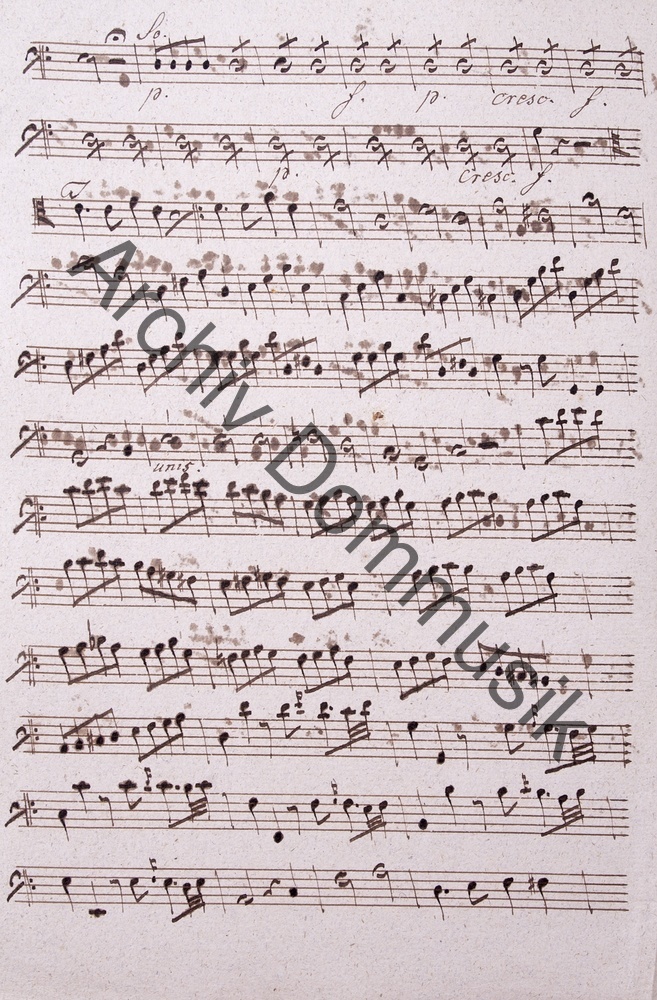 So.
p. f. p. cresc. f.
p. cresc. f.
T
unis.
Archiv Dommusik